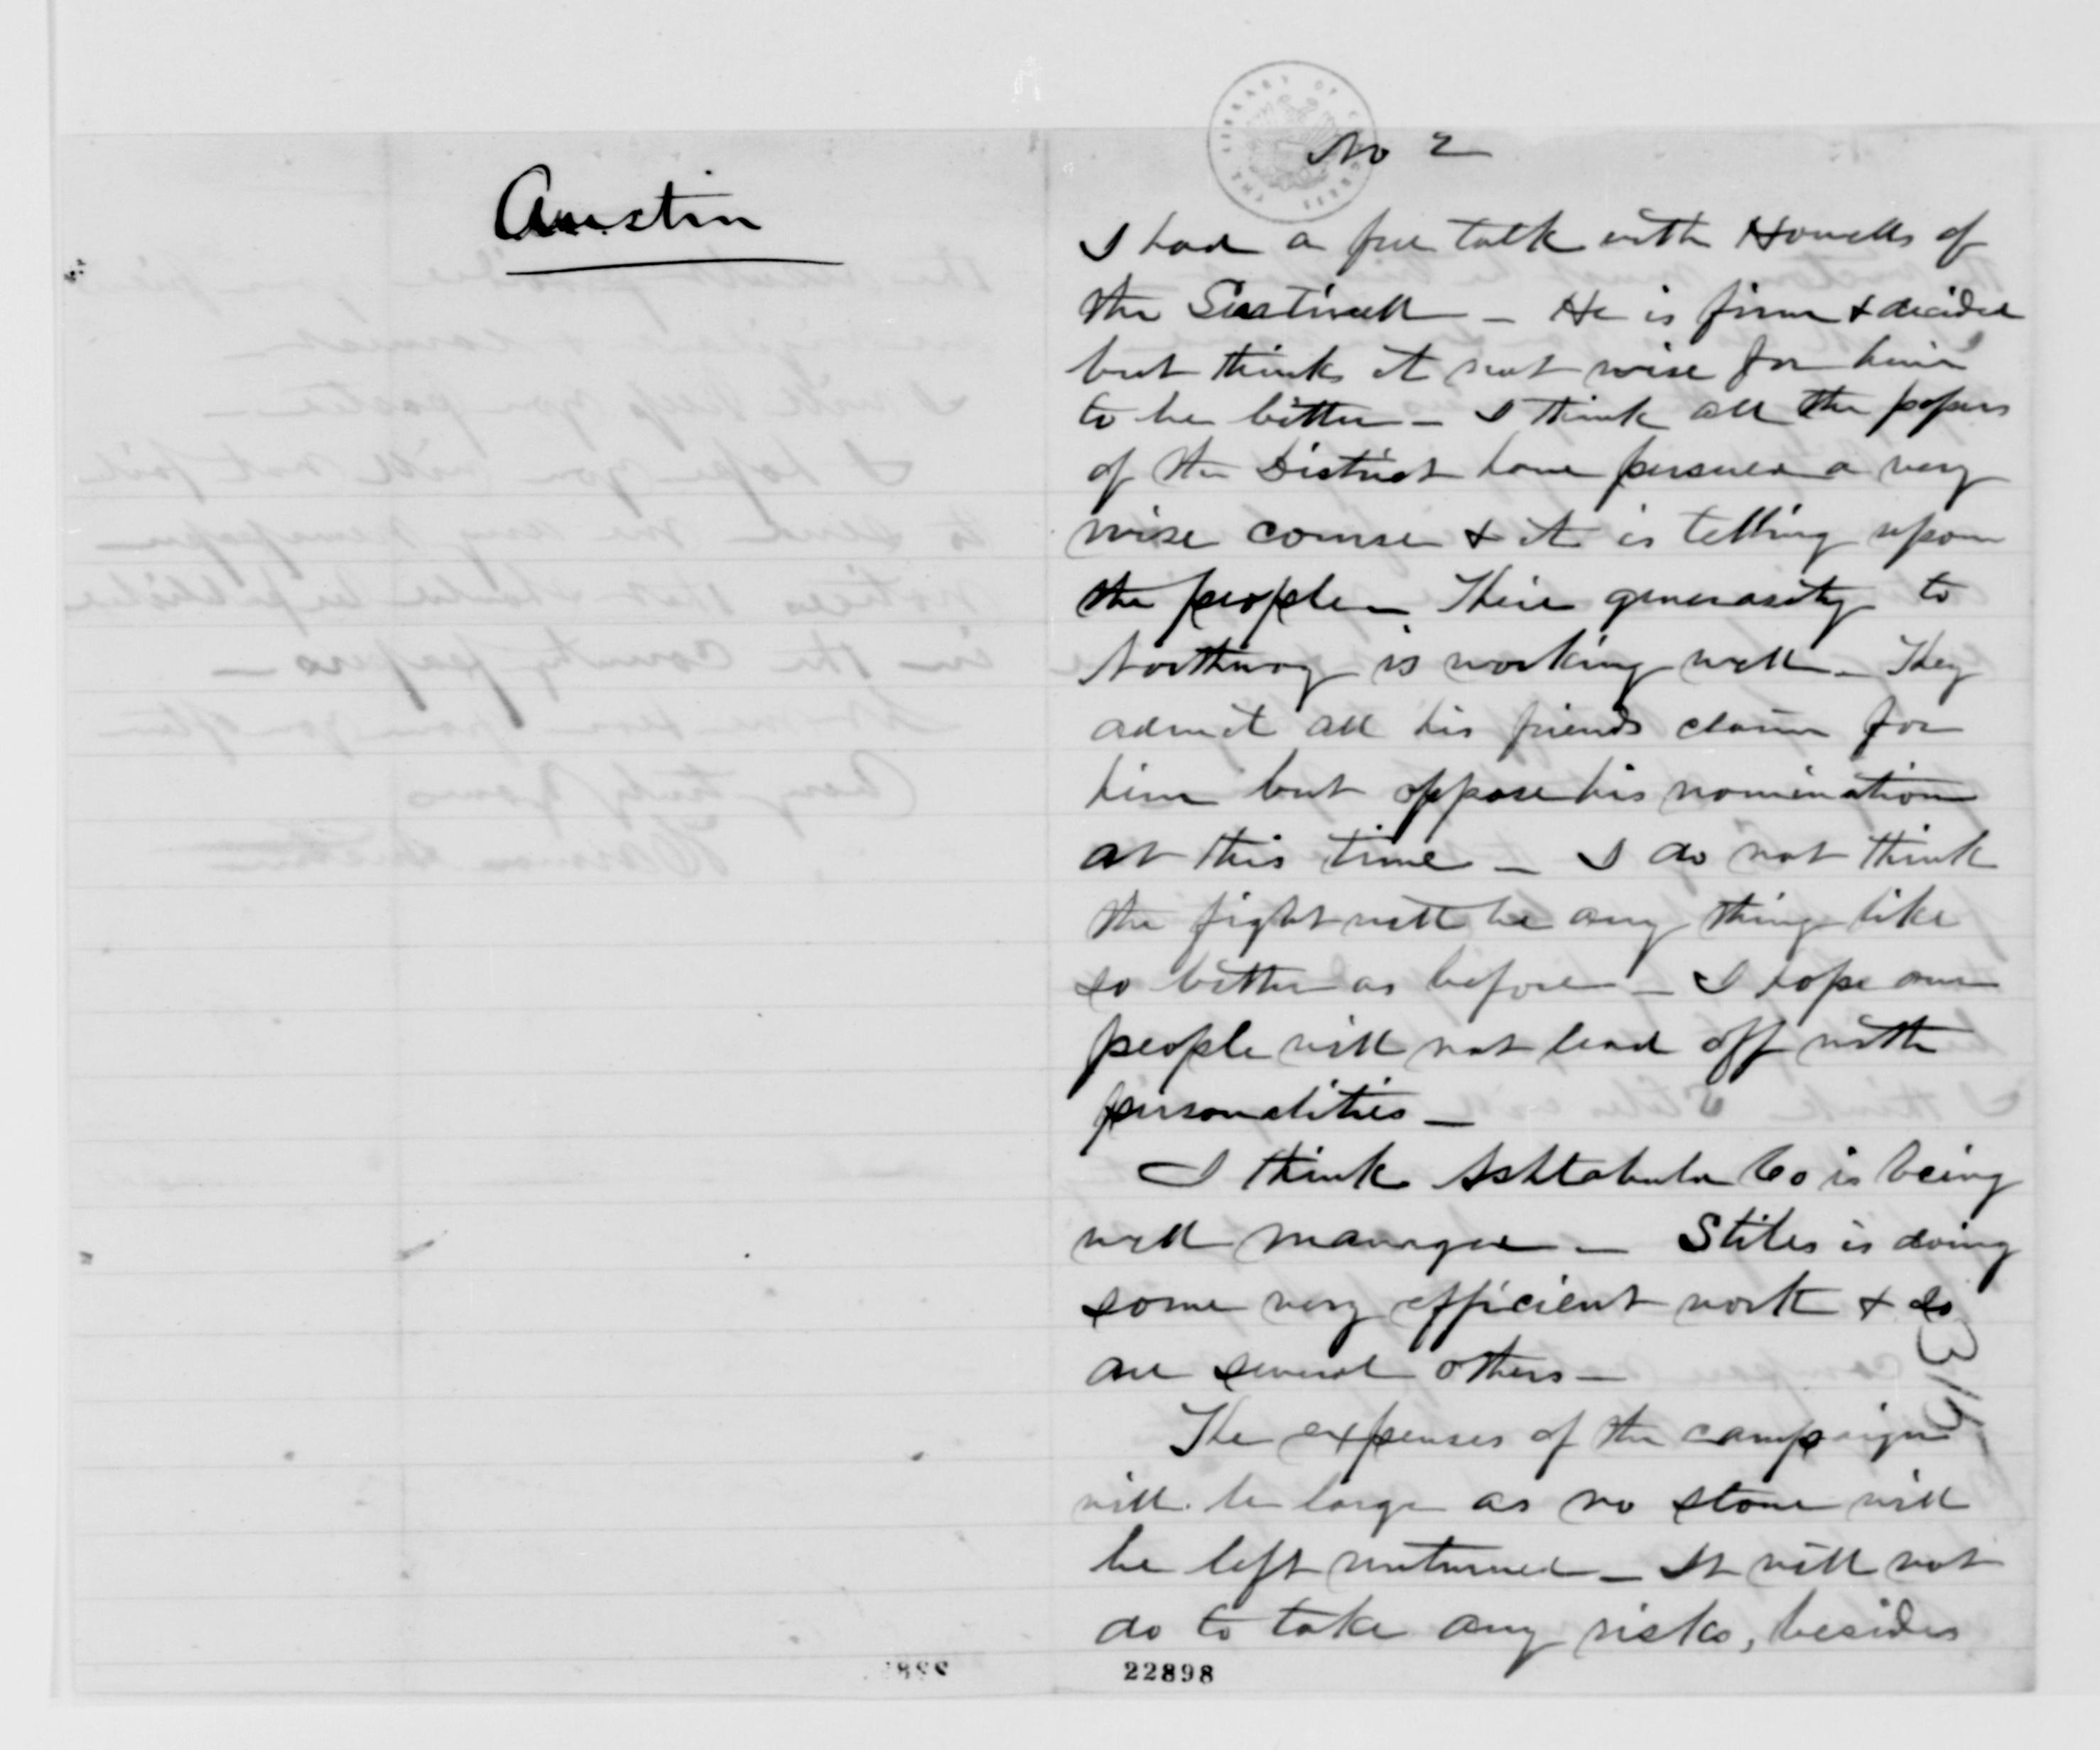 Austin
No 2
I had a free talk with Howells of
the Sentinell - He is firm & decided
but thinks it not wise for him
to be bitter - I think all the papers
of the District have pursued a very
wise course & it is telling upon
the people - Their generosity to
Northway is working well - They
admit all his friends claim for
him but oppose his nomination
at this time - I do not think
the fight will be any thing like
so bitter as before - I hope our
people will not lead off with
personalities -
I think Ashtabula Co is being
well managed - Stiles is doing
some very efficient work & so
are several others -
The expenses of the campaign
will be large as no stone will
be left unturned - It will not
do to take any risks, besides
22898